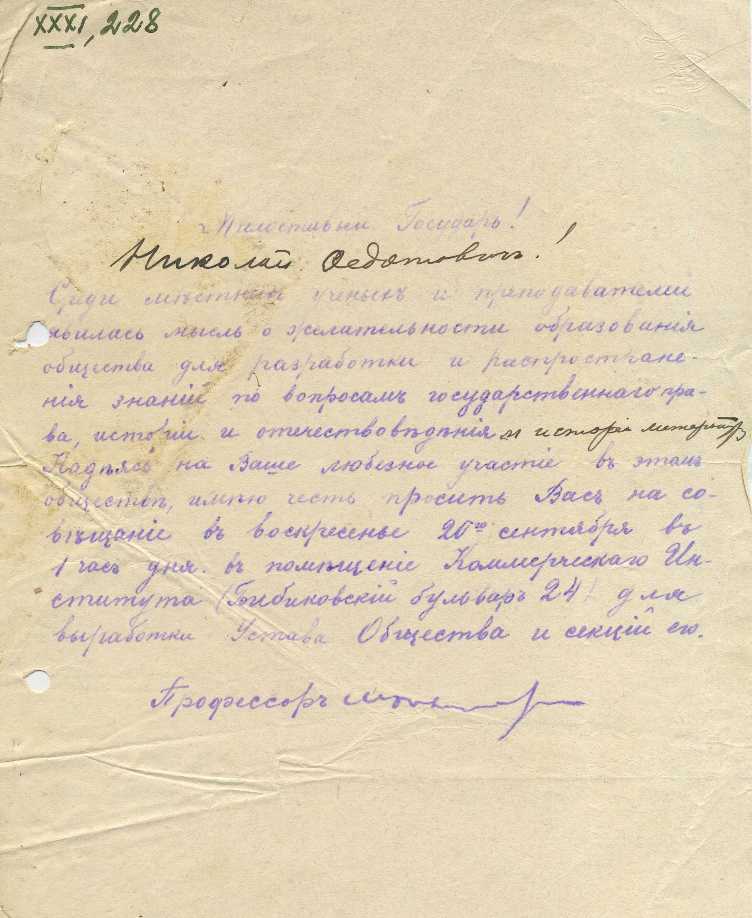 XXXI, 228
Милостивый Государь!
Николай Ѳедотовичъ!
Среди мѣстныхъ ученыхъ и преподавателей
явилась мысль о желательности образованія
общества для разработки и распростране-
нія знаній по вопросамъ государственнаго пра-
ва, исторіи и отечествовѣдѣнія и исторіи литературы
Надѣясь на Ваше любезное участіе въ этомъ
обществѣ, имѣю честь просить Васъ на со-
вѣщаніе въ воскресенье 20го сентября въ
1 часъ дня въ помѣщеніе Коммерческаго Ин-
ститута (Бибиковскій бульваръ 24) для
выработки Устава Общества и секцій его.
Профессоръ